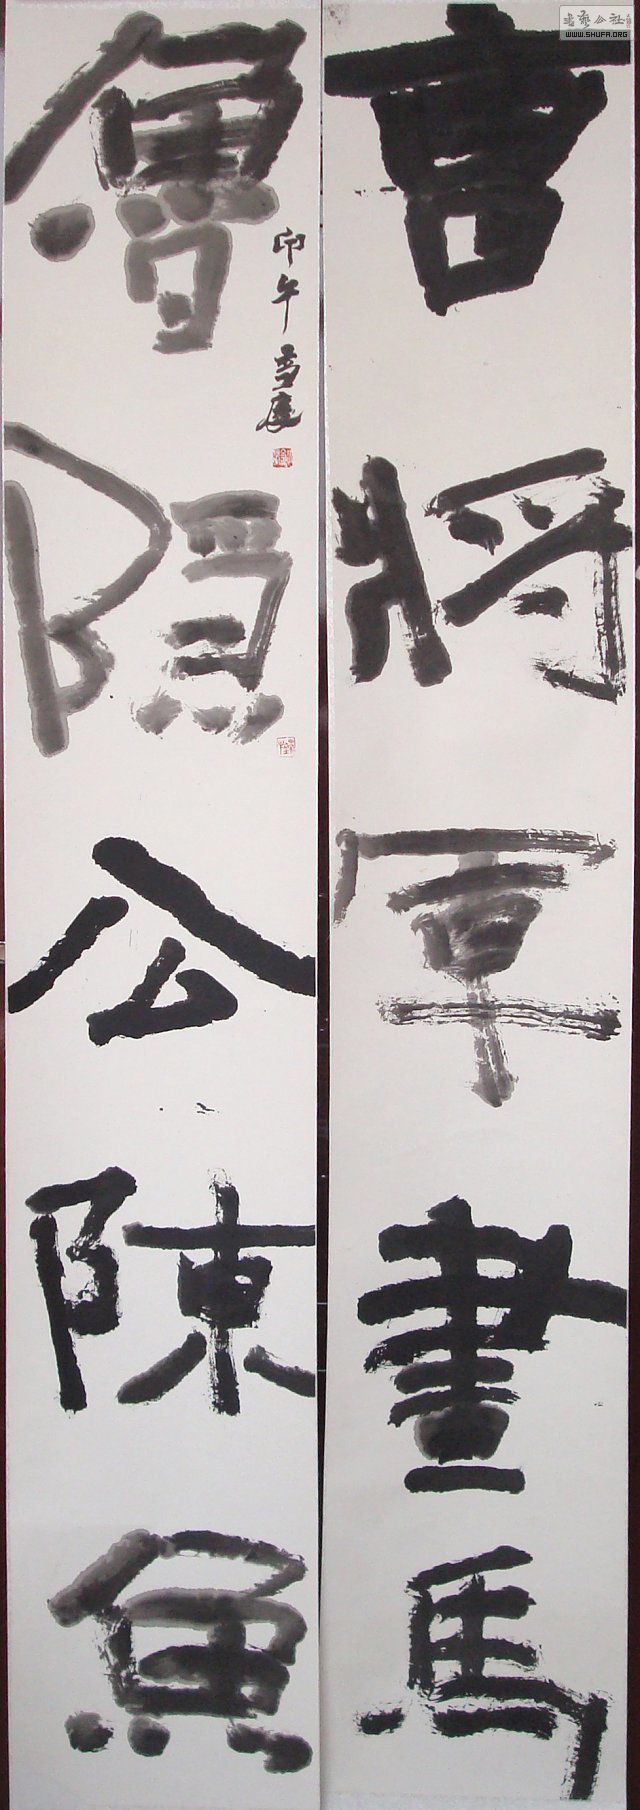 曹將軍畫馬
魯隱公陳魚
卯午
書藝公社
WWW.SHUFA.ORG